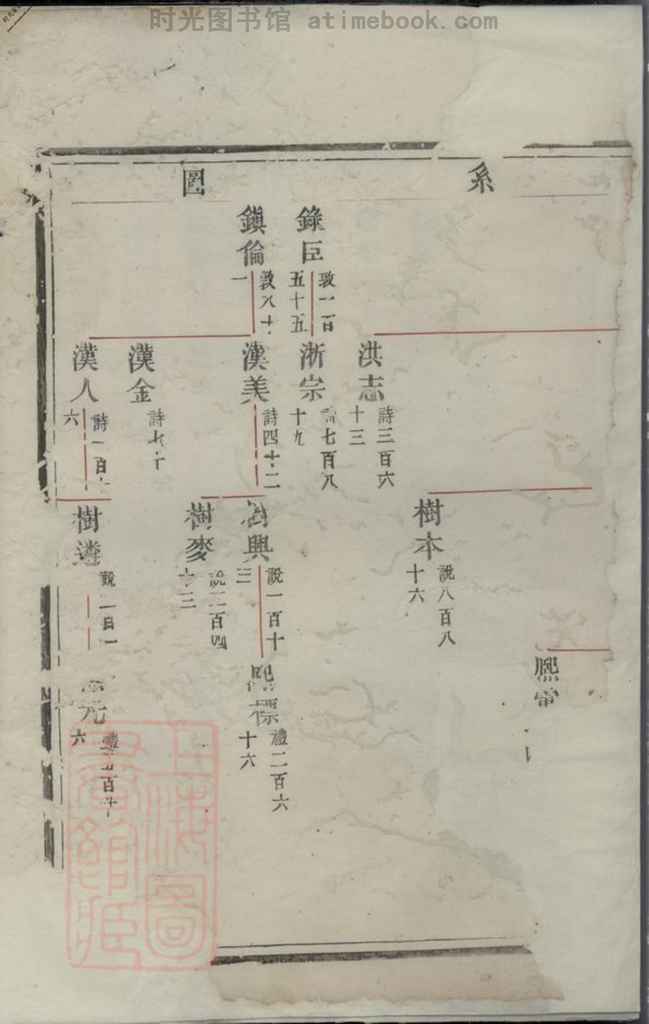 时光图书馆 atimebook.com
系
圖
錄臣
教一百
五十五
鎮倫
教八十
一
洪志
詩三百六
十三
浙宗
詩七百八
十九
漢美
詩四十二
漢金
漢人
詩一百
六
樹本
說八百八
十六
樹興
說一百十
三
樹麥
說二百四
十三
樹遴
說一百一
熙
熙標
禮二百六
十六
元
六
上海圖
書館臧